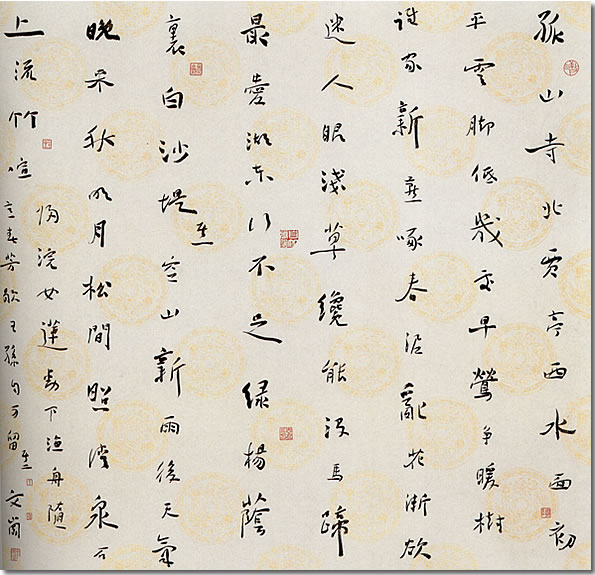 孤山寺北賈亭西水面初
平雲脚低幾處早鶯争暖樹
誰家新燕啄春泥亂花漸欲
迷人眼淺草纔能没馬蹄
最愛湖東行不足綠楊蔭
裏白沙堤 空山新雨後天氣
晚来秋明月松間照清泉石
上流竹喧
歸浣女蓮動下漁舟隨
意春芳歇王孫自可留